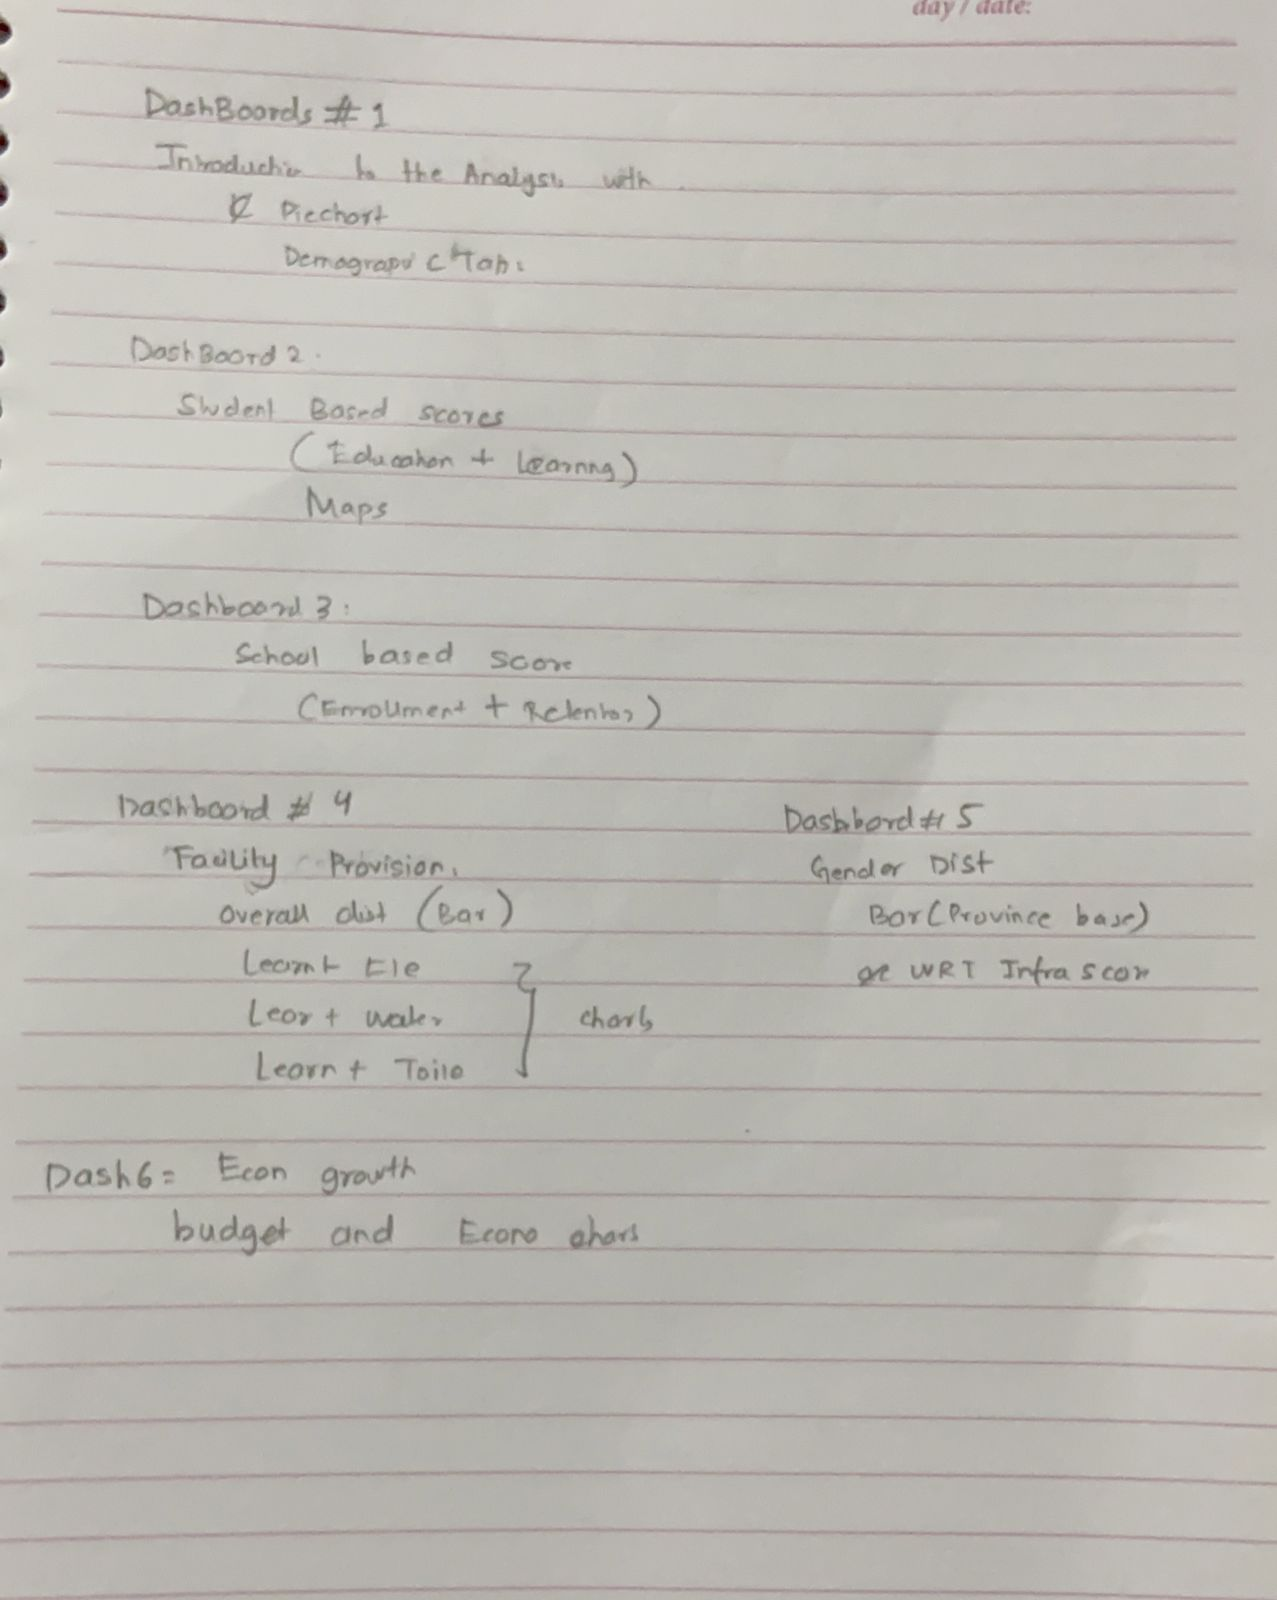 day / date:
DashBoards # 1
Introduction to the Analysis with
Piechart
Demographic Tab:
DashBoard 2.
Student Based scores
(Education + Learning)
Maps
Dashboard 3:
School based score
(Enrollment + Retention)
Dashboard # 4
Facility Provision.
Overall dist (Bar)
Learn + Ele
Lear + water
Learn + Toile
charts
Dashbord # 5
Gender Dist
Bar (Province base)
WRT Infra scor
Dash 6 = Econ growth
budget and Econo chars